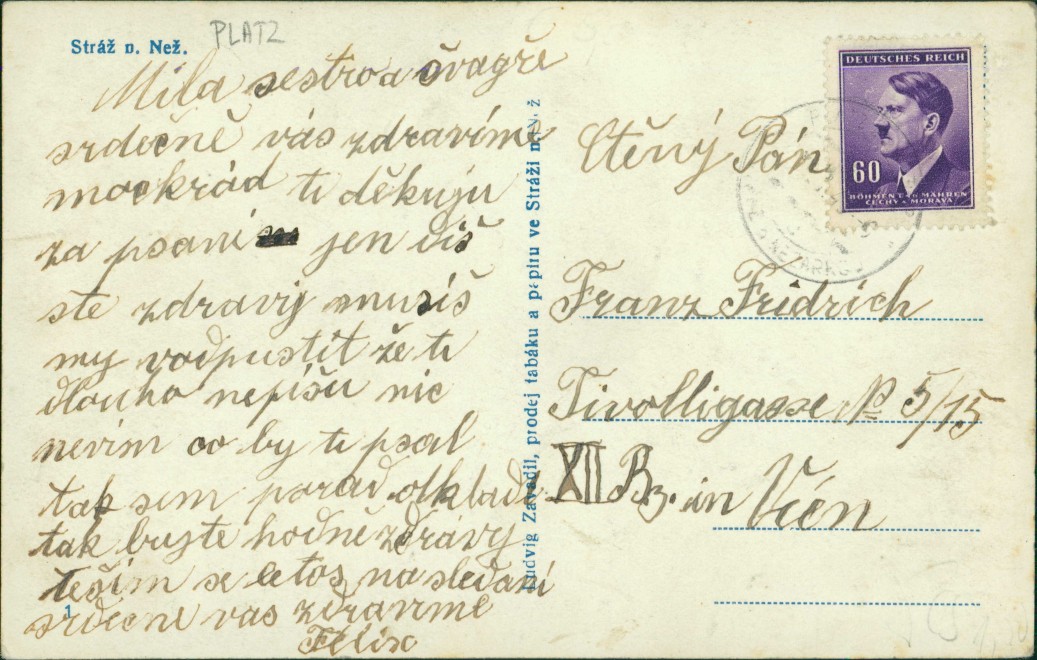 Stráž n. Než.
PLATZ
Milá sestro a švagře
srdečně vás zdravíme
mockrád ti děkuju
za psaní jen diš
ste zdravij musíš
my vodpustit že ti
dlouho nepíšu nic
nevim co by ti psal
tak sem pořád otkladal
tak bujte hodně zdrávy
těším se letos na sledani
srdecne vas zdravime
Felix
1
Ludvig Zavadil, prodej tabáku a papíru ve Stráži n. N. ž
DEUTSCHES REICH
60
BÖHMEN U. MÄHREN
ČECHY A MORAVA
Ctěný Pán
Franz Fridrich
Tivolligasse № 5/15
XII Bz. in Vien